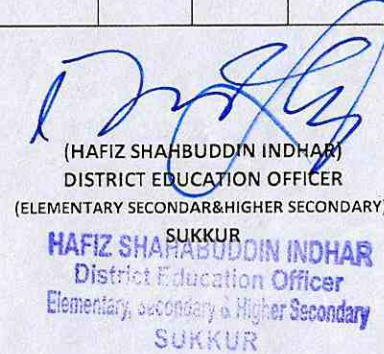 (HAFIZ SHAHBUDDIN INDHAR)
DISTRICT EDUCATION OFFICER
(ELEMENTARY SECONDAR&HIGHER SECONDARY)
SUKKUR
HAFIZ SHAHABUDDIN INDHAR
District Education Officer
Elementary, Secondary & Higher Secondary
SUKKUR